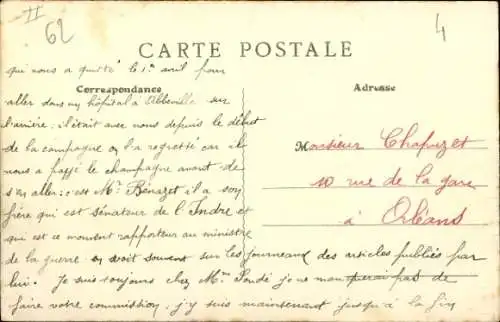 II
62
4
CARTE POSTALE
qui nous a quitté le 1er avril pour
Correspondance
Adresse
aller dans un hôpital à Abbeville sur
l'arrière : il était avec nous depuis le début
de la campagne on l'a regretté car il
nous a payé le champagne avant de
s'en aller : c'est Mr. Bénazet il a son
frère qui est sénateur de l'Indre et
qui est ce moment rapporteur au ministre
de la guerre on voit souvent sur les journeaux des articles publiés par
lui. Je suis toujours chez Mme je ne manquerai pas de
faire votre commission ; j'y suis maintenant jusqu'à la fin
Monsieur Chapuzet
10 rue de la gare
à Orléans